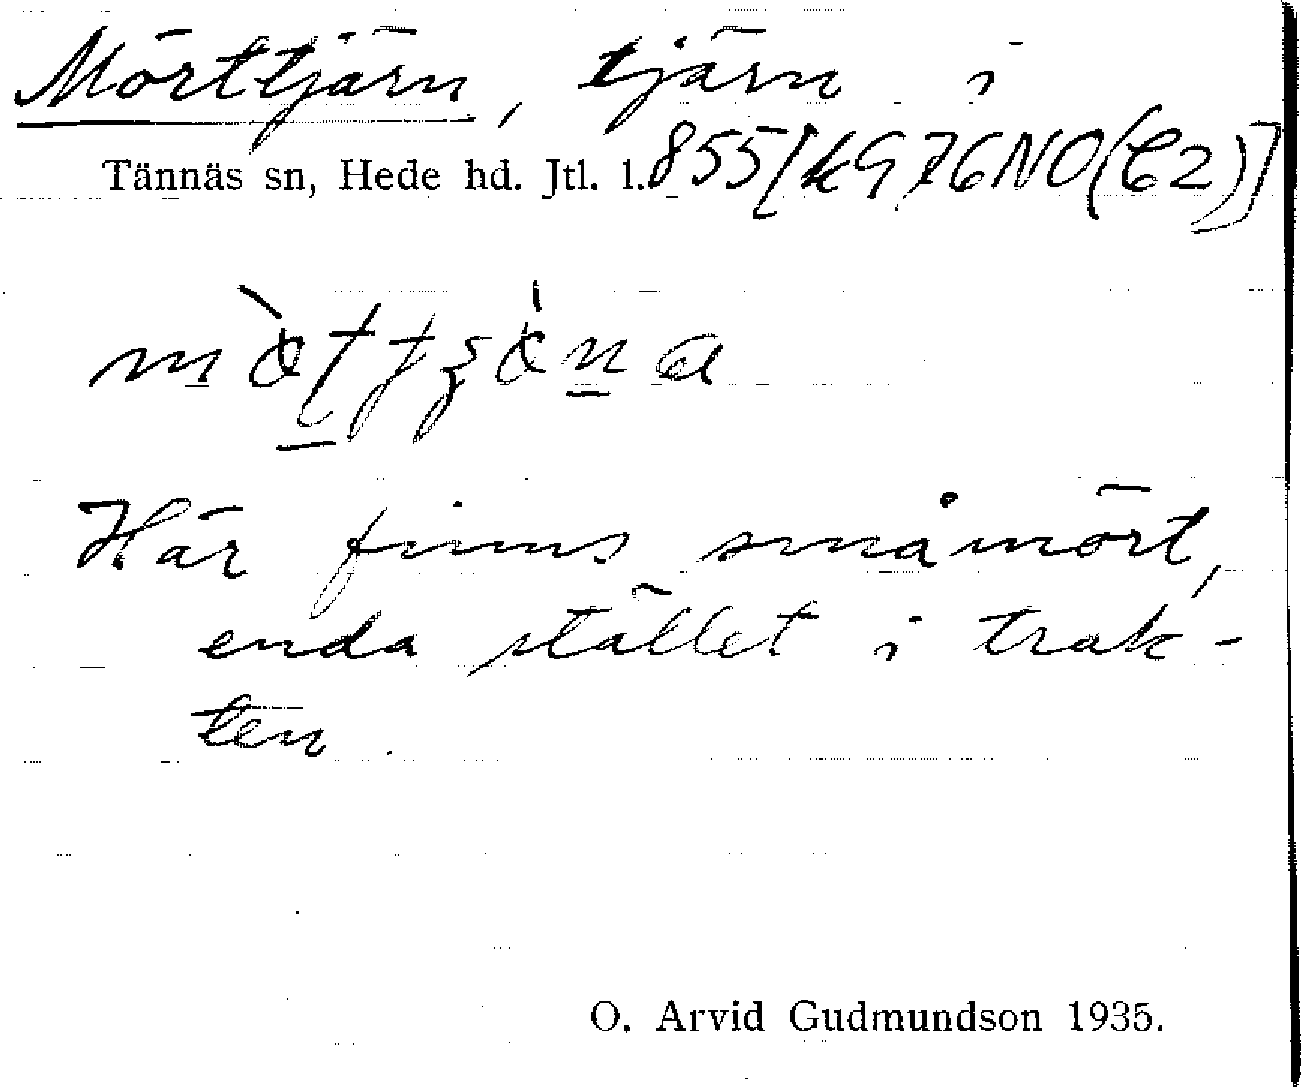 Mörttjärn, tjärn i
Tännäs sn, Hede hd. Jtl. l. 855[kG76NO(C2)]
Här finns småmört,
enda stället i trak-
ten.
O. Arvid Gudmundson 1935.